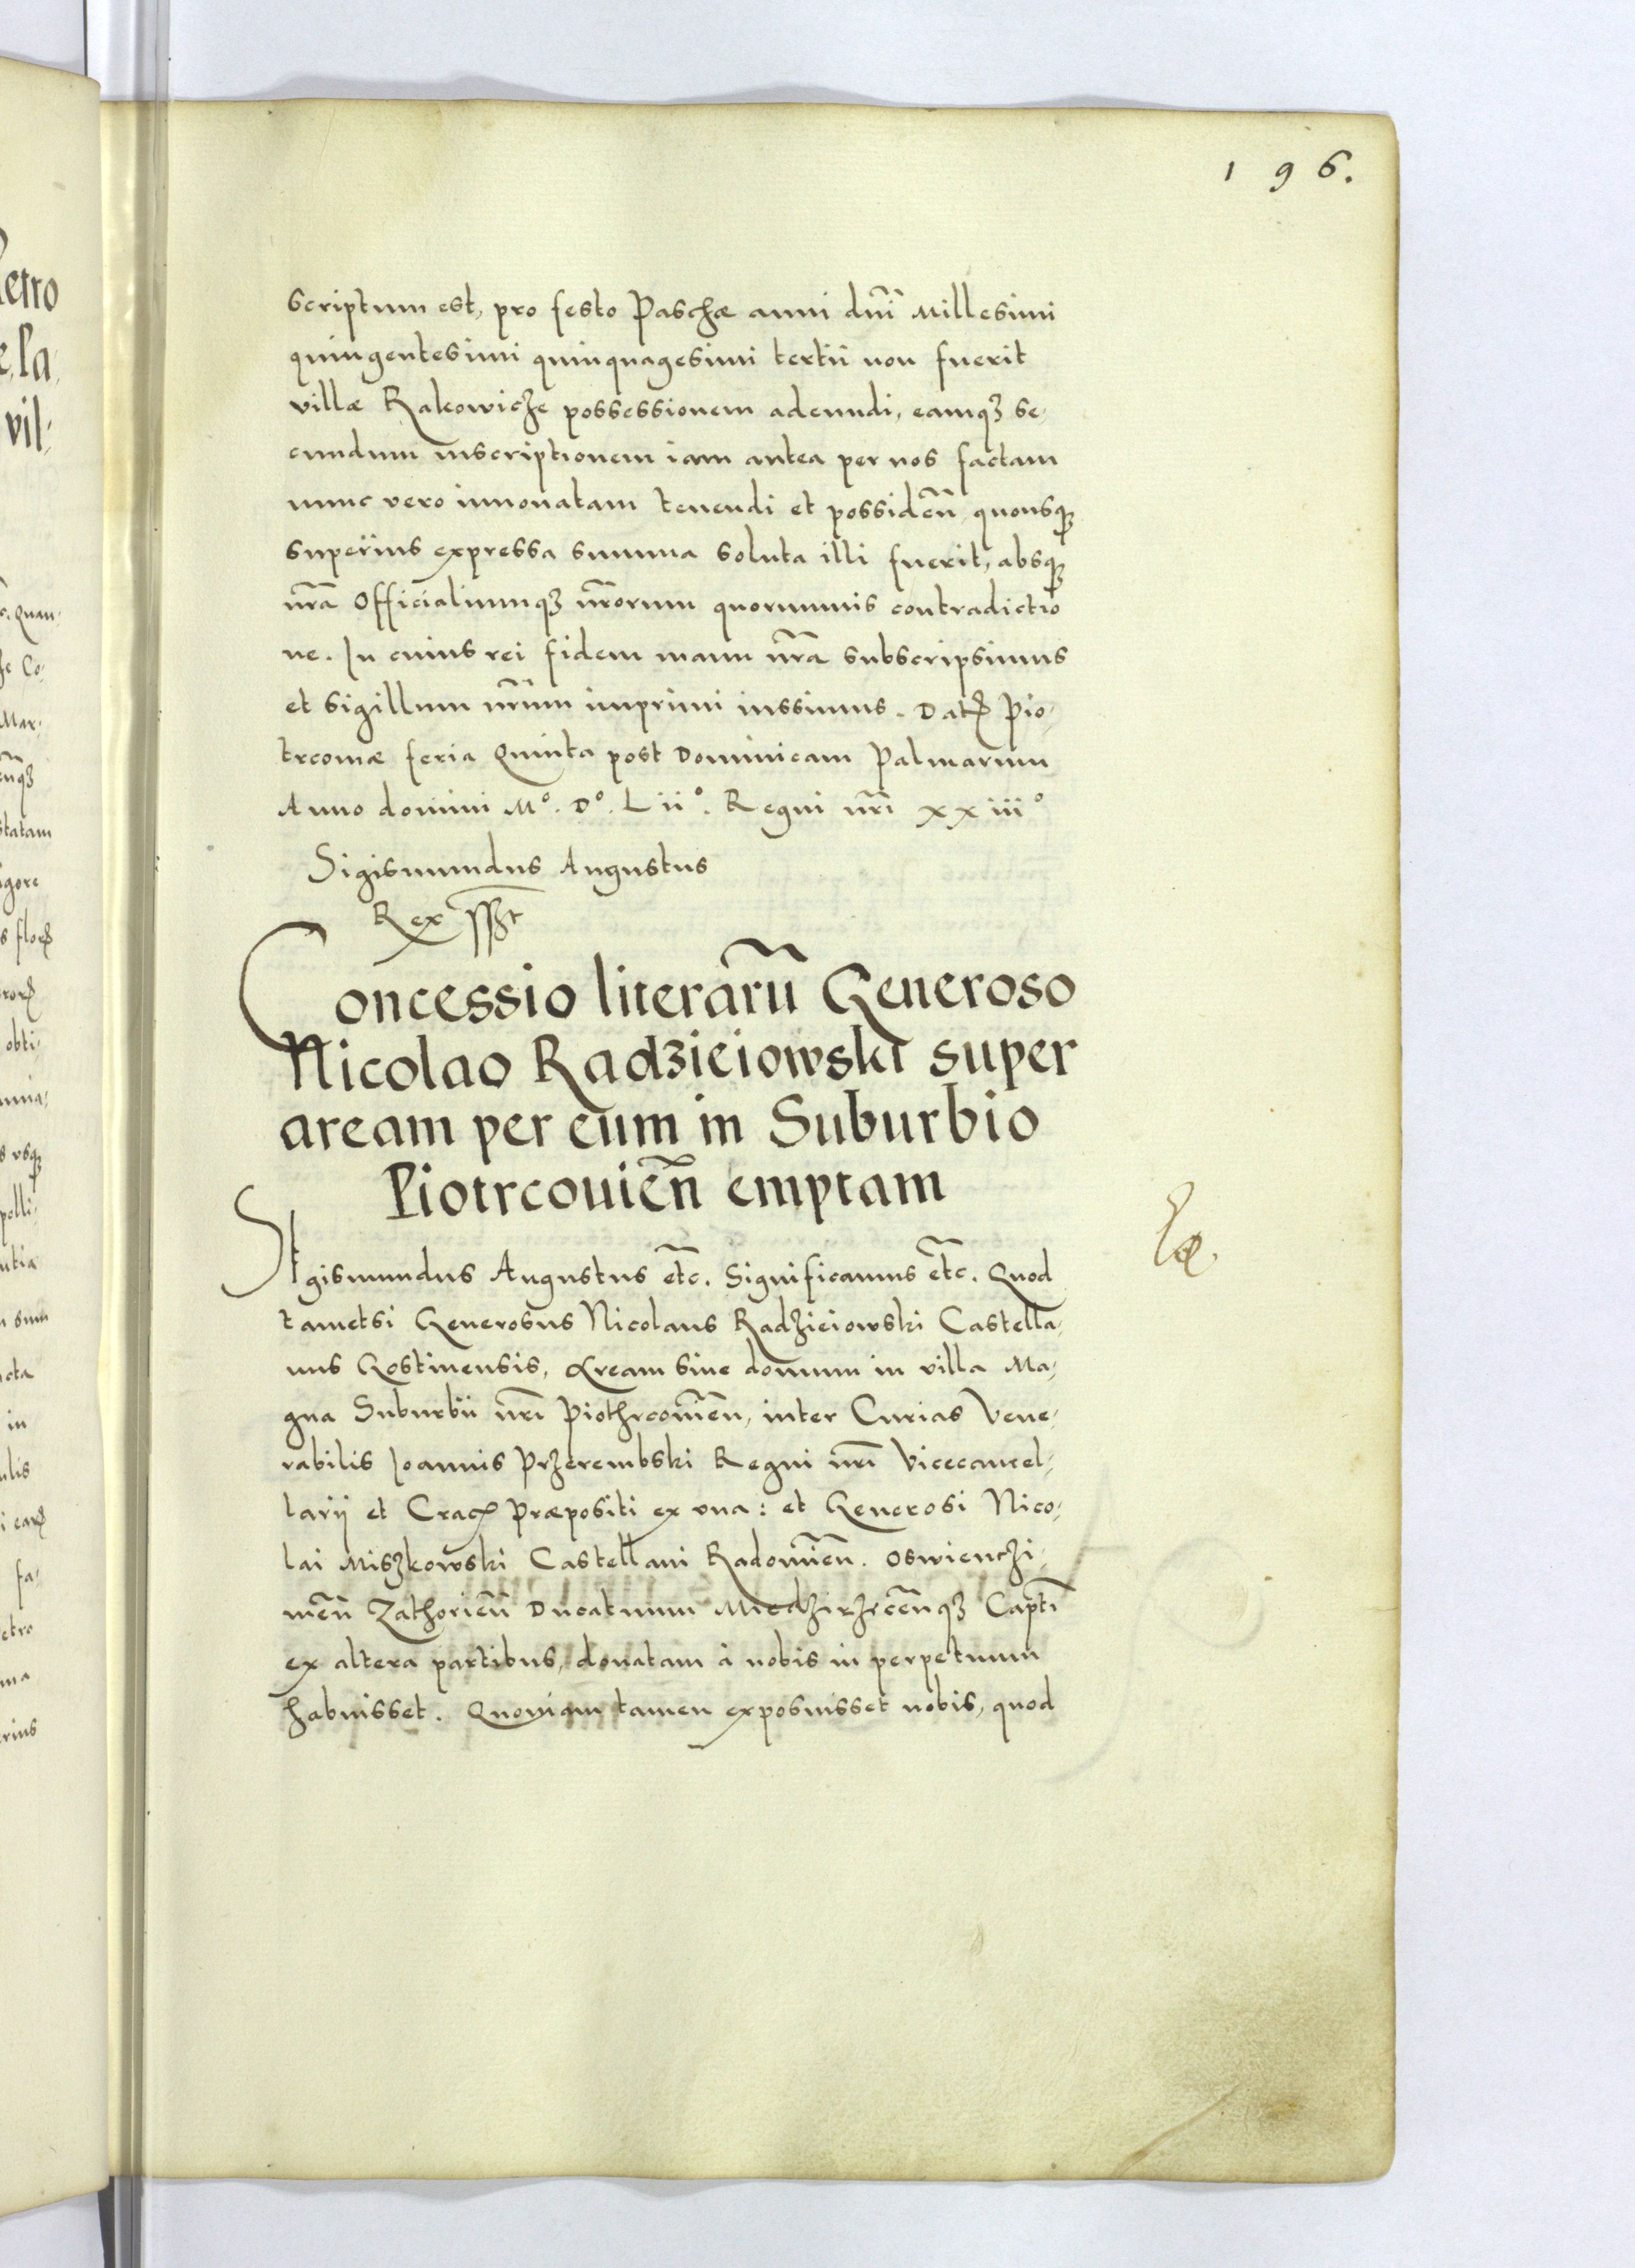 196.
scriptum est, pro festo Paschæ anni dn̄i Millesimi
quingentesimi quinquagesimi tertii non fuerit
villæ Rakowicze possessionem adeundi, eamqꝫ se-
cundum inscriptionem iam antea per nos factam
nunc vero innouatam tenendi et possidēn quousqꝫ
superius expressa summa soluta illi fuerit, absqꝫ
nr̄a Officialiumqꝫ nr̄orum quorumuis contradictio
ne. In cuius rei fidem manu nr̄a subscripsimus
et sigillum nr̄um imprimi iussimus. Datꝭ Pio-
trcouiæ feria Quinta post Dominicam Palmarum
Anno domini Mº. Dº. Liiº. Regni nr̄i xxiiiº
Sigismundus Augustus
Rex sszt
Concessio literarū Generoso
Nicolao Radzieiowski super
aream per eum in Suburbio
Piotrcouien̄ emptam
Sigismundus Augustus etc̄. Significamus etc̄. Quod
tametsi Generosus Nicolaus Radzieiowski Castella-
nus Gostinensis, Aream siue domum in villa Ma-
gna Suburbii nr̄i Piothrcouien̄, inter Curias Vene-
rabilis Ioannis Przerembski Regni nr̄i Vicecancel-
larij et Cracꝭ Præpositi ex vna: et Generosi Nico-
lai Miszkowski Castellani Radomien̄. Oswienczi-
men̄ Zathorien̄ Ducatuum Miedzirzecen̄qꝫ Capt̄i
ex altera partibus, donatam à nobis in perpetuum
habuisset. Quoniam tamen exposuisset nobis, quod